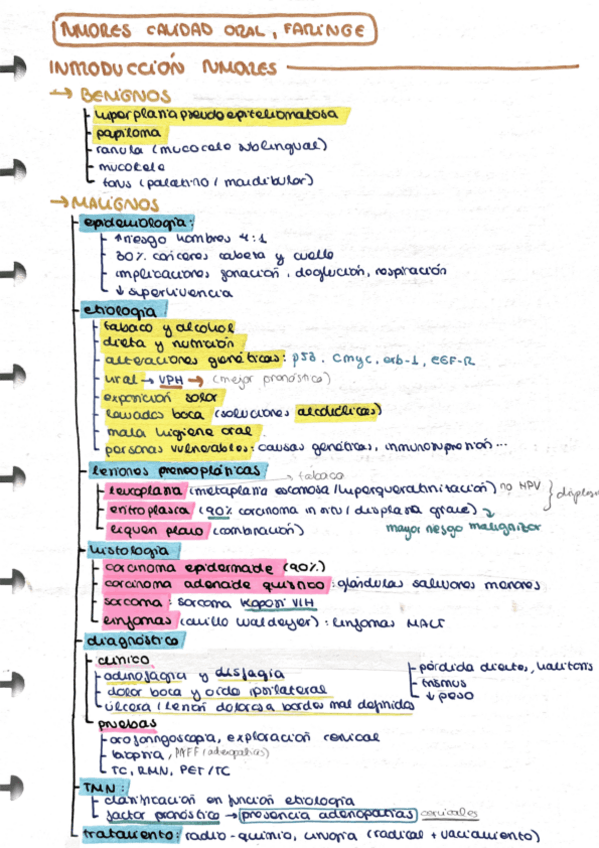 TUMORES CAVIDAD ORAL, FARINGE
INTRODUCCIÓN TUMORES
→ BENIGNOS
hiperplasia pseudoepiteliomatosa
papiloma
ranula (mucocele sublingual)
mucocele
torus (palatino / mandibular)
→ MALIGNOS
epidemiologia:
↑ riesgo hombres 4:1
30% canceres cabeza y cuello
implicaciones fonación, deglución, respiración
↓ supervivencia
etiologia
tabaco y alcohol
dieta y nutrición
alteraciones genéticas: p53, cmyc, erb-1, EGF-R
viral → VPH → (mejor pronóstico)
exposición solar
lavados boca (soluciones alcohólicas)
mala higiene oral
personas vulnerables: causas genéticas, inmunosupresión...
lesiones preneoplásicas
tabaco
leucoplasia (metaplasia escamosa / hiperqueratinización) no HPV } displasia
eritroplasia (90% carcinoma in situ / displasia grave)
mayor riesgo malignizar
liquen plano (combinación)
histologia
carcinoma epidermoide (90%)
carcinoma adenoide quistico: glándulas salivares menores
sarcoma: sarcoma Kaposi VIH
linfomas (anillo Waldeyer): linfomas MALT
diagnóstico
clinico
odinofagia y disfagia
dolor boca y oido ipsilateral
úlcera / lesión dolorosa bordes mal definidos
pérdida dientes, halitosis
trismus
↓ peso
pruebas
orofaringoscopia, exploración cervical
biopsia, PAFF (adenopatias)
TC, RMN, PET/TC
TMN:
clasificación en función etiologia
factor pronóstico → presencia adenopatias cervicales
tratamiento: radio-quimio, cirugia (radical + vaciamiento)